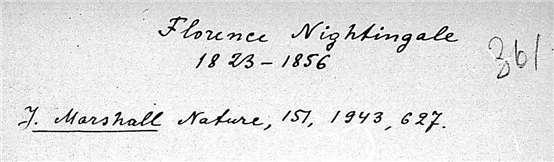 Florence Nightingale
1823-1856
361
J. Marshall Nature, 151, 1943, 627.